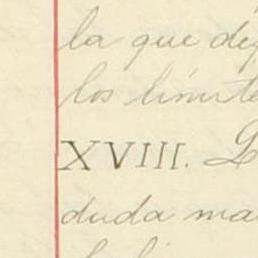 la que de
los límite
XVIII.
duda ma